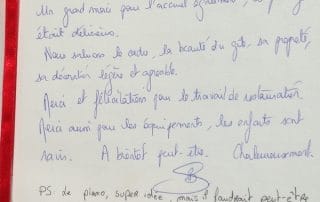 Un grand merci pour l'accueil également,
était délicieux.
Nous saluons le cadre, la beauté du gîte, sa propreté,
sa décoration légère et agréable.
Merci et félicitations pour le travail de restauration.
Merci aussi pour les équipements, les enfants sont
ravis. A bientôt peut-être. Chaleureusement.
PS: le piano, super idée, mais il faudrait peut-être